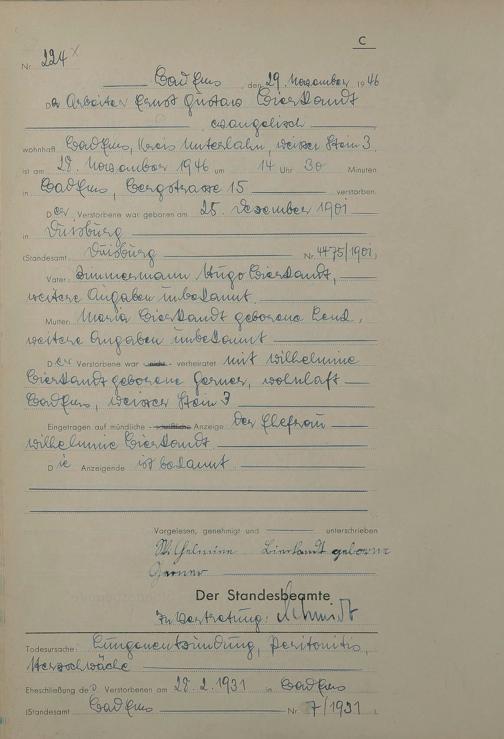 C
Nr. 224
Bad Ems, den 29. November 1946
Der Arbeiter Ernst Gustav Bierstandt
evangelisch
wohnhaft Bad Ems, Kreis Unterlahn, weisser Stein 3
ist am 28. November 1946 um 14 Uhr 30 Minuten
in Bad Ems, Bergstrasse 15 verstorben.
Der Verstorbene war geboren am 25. Dezember 1901
in Duisburg
(Standesamt Duisburg Nr. 4475/1901)
Vater: Zimmermann Hugo
weitere Angaben unbekannt.
Mutter: Maria geborene
weitere Angaben unbekannt
Der Verstorbene war nicht verheiratet mit Wilhelmine
geborene wohnhaft
Bad Ems, weisser Stein 3
Eingetragen auf mündliche – schriftliche Anzeige der Ehefrau
Wilhelmine
Die Anzeigende ist bekannt
Vorgelesen, genehmigt und unterschrieben
Wilhelmine geborene
Der Standesbeamte
In Vertretung: Schmidt
Todesursache: Lungenentzündung, Peritonitis,
Herzschwäche
Eheschließung des Verstorbenen am 28.2.1931 in Bad Ems
(Standesamt Bad Ems Nr. 7/1931).